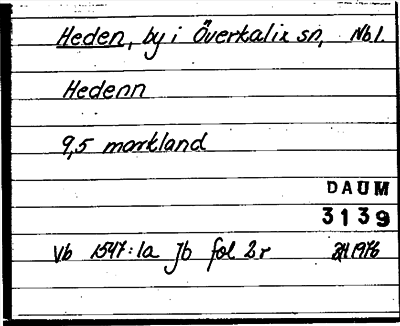 Heden, by i Överkalix sn, Nb.l.
Hedenn
9,5 markland
DAUM
3139
Vb 1547:1a Jb fol 2r 1976